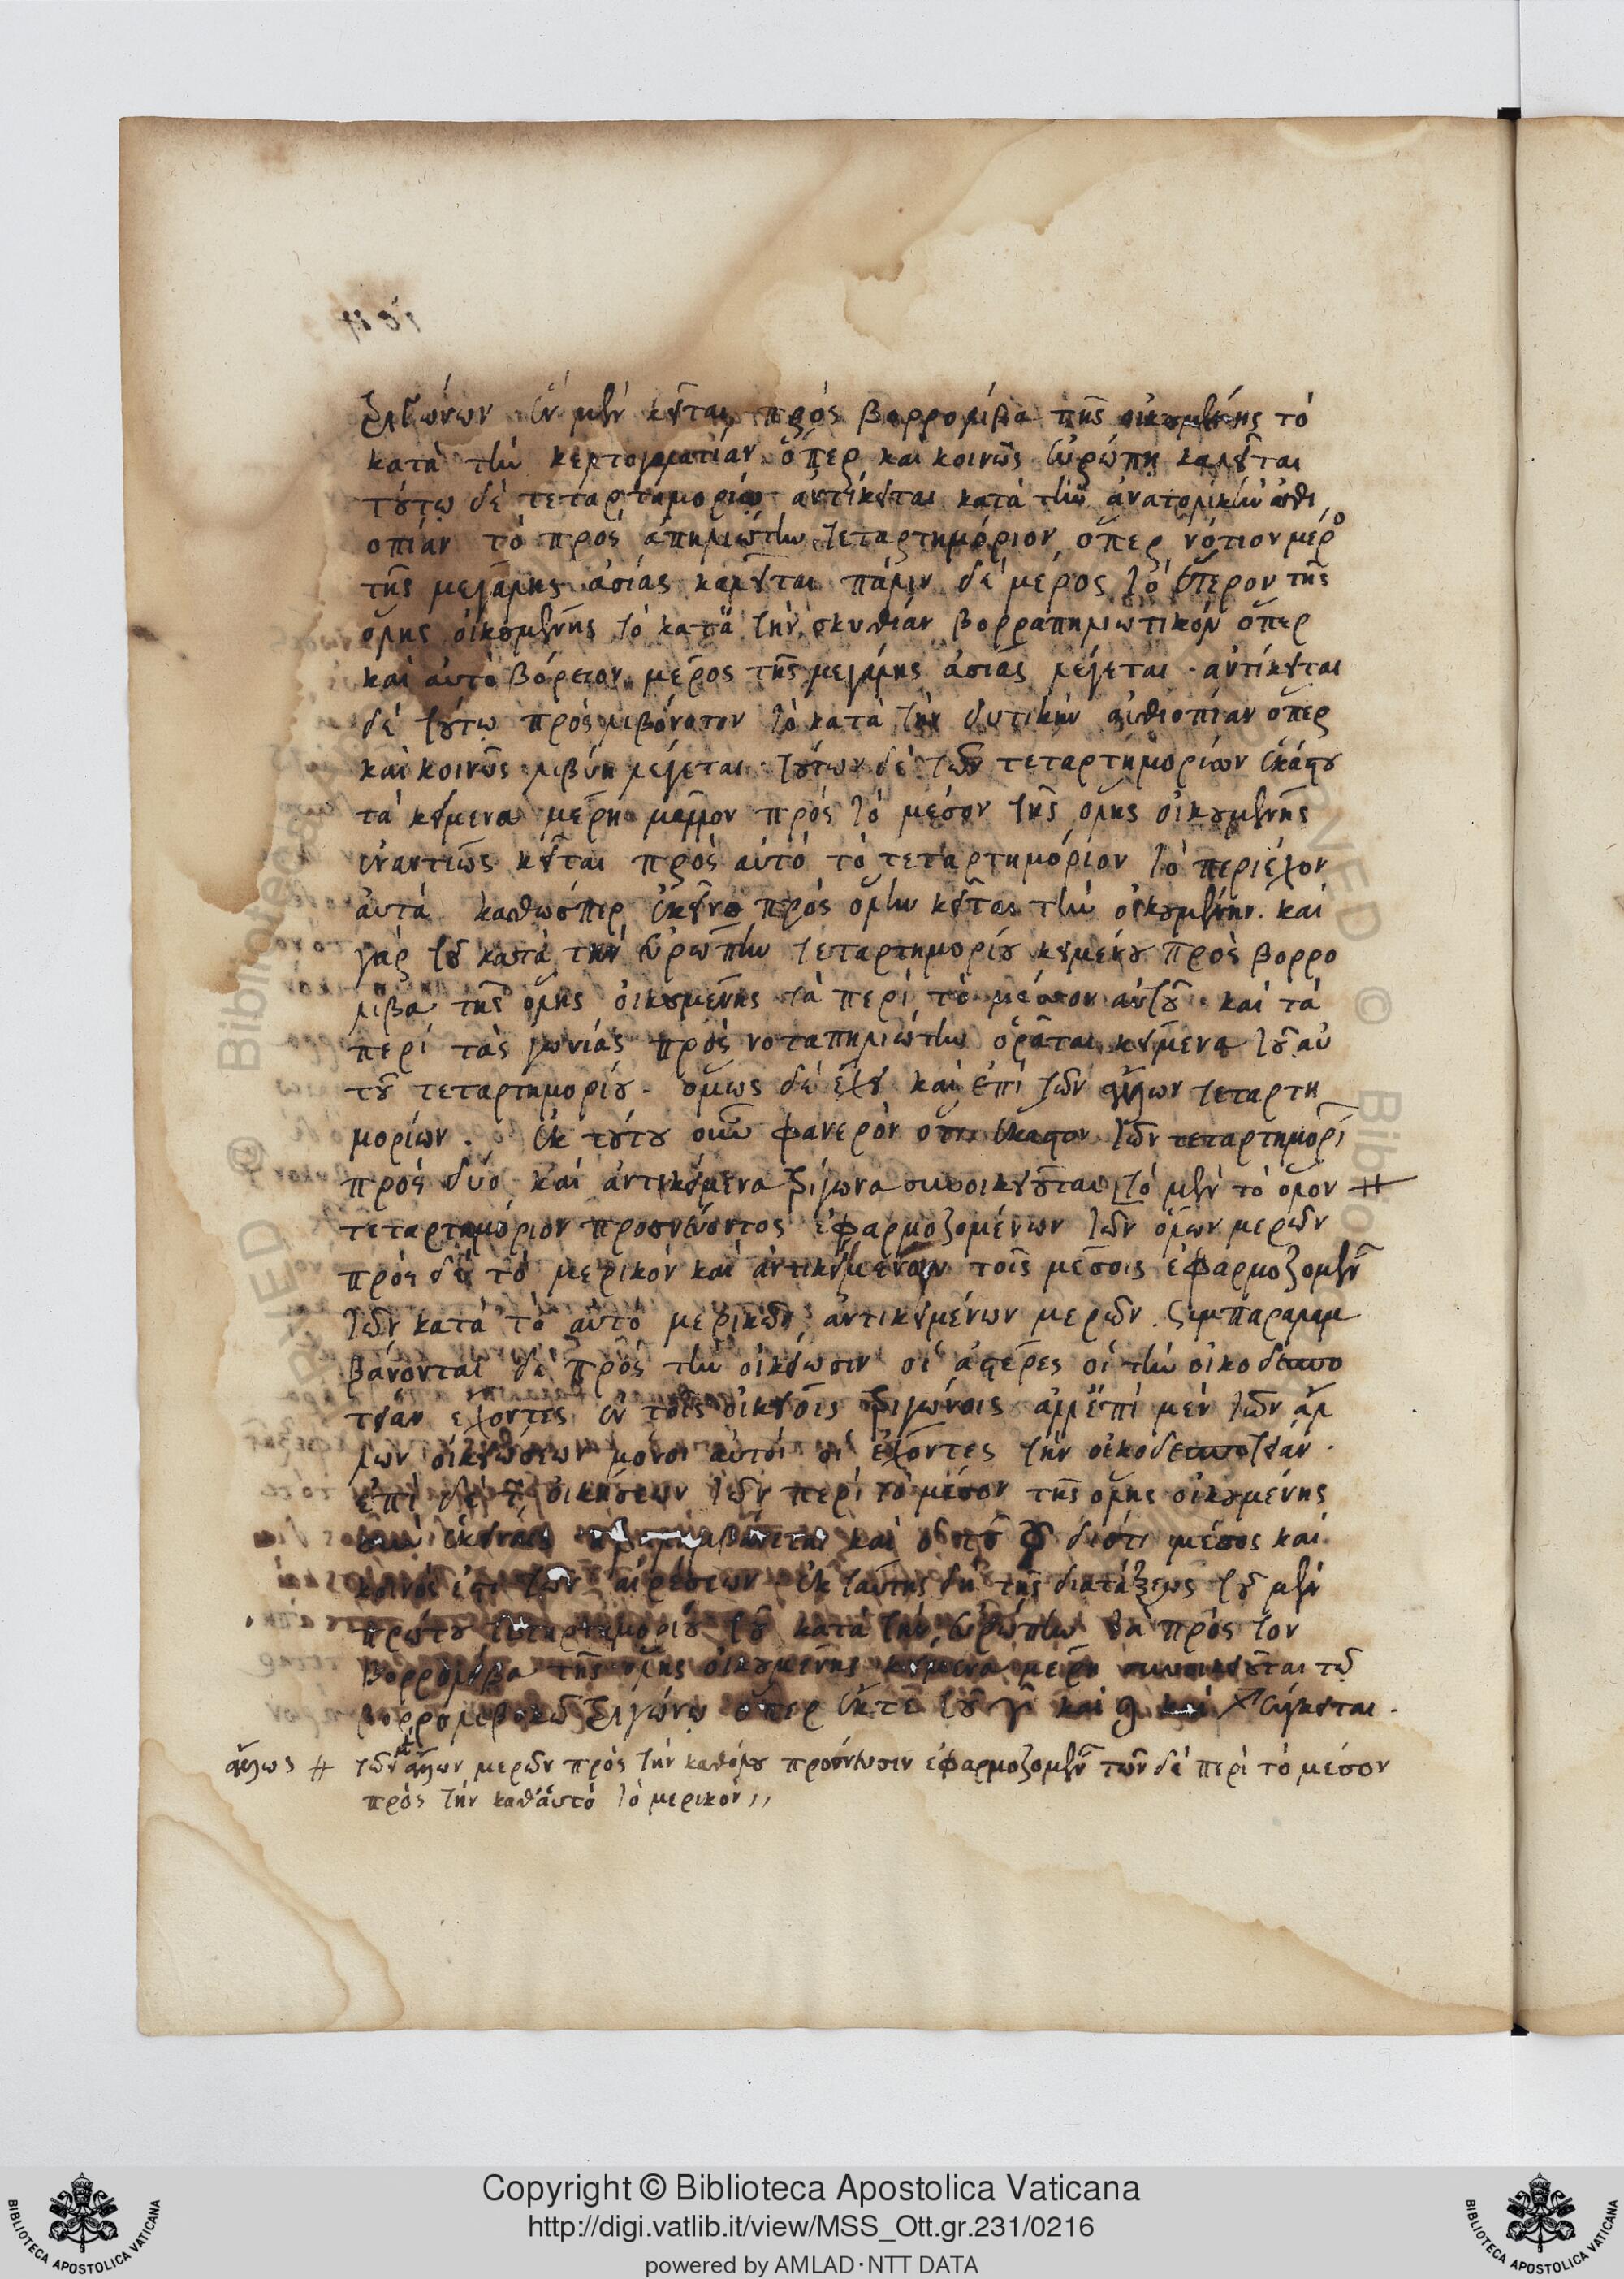 τριγώνων ἓν μὲν κεῖται πρὸς βορρολίβα τῆς οἰκουμένης τὸ
κατὰ τὴν κελτογαλατίαν ὅπερ καὶ κοινῶς εὐρώπη καλεῖται
τούτω δὲ τεταρτημορίω ἀντίκειται κατὰ τὴν ἀνατολικὴν αἰθι
οπίαν τὸ πρὸς ἀπηλιώτην τεταρτημόριον ὅπερ νότιον μέρο
τῆς μεγάλης ἀσίας καλεῖται πάλιν δὲ μέρος τὸ ἕτερον τῆς
ὅλης οἰκουμένης τὸ κατὰ τὴν σκυθίαν βορραπηλιωτικὸν ὅπερ
καὶ αὐτὸ βόρειον μέρος τῆς μεγάλης ἀσίας λέγεται. ἀντίκειται
δὲ τούτω πρὸς λιβόνοτον τὸ κατὰ τὴν δυτικὴν αἰθιοπίαν ὅπερ
καὶ κοινῶς λιβύη λέγεται. τούτων δὲ τῶν τεταρτημορίων ἑκάστου
τὰ κείμενα μέρη μᾶλλον πρὸς τὸ μέσον τῆς ὅλης οἰκουμένης
ἐναντίως κεῖται πρὸς αὐτὸ τὸ τεταρτημόριον τὸ περιέχον
αὐτά καθώσπερ ἐκεῖνο πρὸς ὅλην κεῖται τὴν οἰκουμένην. καὶ
γὰρ τοῦ κατὰ τὴν εὐρώπην τεταρτημορίου κειμένου πρὸς βορρο
λίβα τῆς ὅλης οἰκουμένης τὰ περὶ τὸ μέσον αὐτοῦ καὶ τὰ
περὶ τὰς γωνίας πρὸς νοταπηλιώτην ὁρᾶται κείμενα τοῦ αὐ
τοῦ τεταρτημορίου. ὅμως δὲ ἔχει καὶ ἐπὶ τῶν ἄλλων τεταρτη
μορίων. ἐκ τούτου οὖν φανερὸν ὅτι ἕκαστον τῶν τεταρτημορί
πρὸς δύο καὶ ἀντικείμενα τρίγωνα συνοικειοῦται τὸ μὲν τὸ ὅλον #
τεταρτημόριον προσνεύοντος ἐφαρμοζομένων τῶν ὅλων μερῶν
πρὸς δὲ τὸ μερικὸν καὶ ἀντικείμενον τοῖς μέσοις ἐφαρμοζομέν
τῶν κατὰ τὸ αὐτὸ μερικῶν ἀντικειμένων μερῶν. συμπαραλαμ
βάνονται δὲ πρὸς τὴν οἰκείωσιν οἱ ἀστέρες οἱ τὴν οἰκοδεσπο
τείαν ἔχοντες ἐν τοῖς οἰκείοις τριγώνοις ἀλλ' ἐπὶ μὲν τῶν ἄλ
λων οἰκειώσεων μόνοι αὐτοὶ οἱ ἔχοντες τὴν οἰκοδεσποτείαν.
ἐπὶ δὲ τ οἰκήσεων τῶν περὶ τὸ μέσον τῆς ὅλης οἰκουμένης
καὶ ὁ τοῦ ☿ διότι μέσος καὶ
κοινός ἐστι τῶν αἱρέσεων ἐκ ταύτης δὴ τῆς διατάξεως τοῦ μὲν
πρώτου τεταρτημορίου τοῦ κατὰ τὴν εὐρώπην τὰ πρὸς τὸν
βορρολίβα τῆς ὅλης οἰκουμένης κείμενα μέρη συνοικειοῦται τῶ
βορρολιβυκῶ τριγώνω ὅπερ ἔκ τε τοῦ ♈ καὶ ♌ καὶ ♐ σύγκειται.
ἄλλως # τῶν μ ἄλλων μερῶν πρὸς τὴν καθόλου πρόσνευσιν ἐφαρμοζομέν τῶν δὲ περὶ τὸ μέσον
πρὸς τὴν καθ' ἑαυτὸ τὸ μερικόν,,
Copyright © Biblioteca Apostolica Vaticana
http://digi.vatlib.it/view/MSS_Ott.gr.231/0216
powered by AMLAD·NTT DATA
BIBLIOTECA APOSTOLICA VATICANA
BIBLIOTECA APOSTOLICA VATICANA